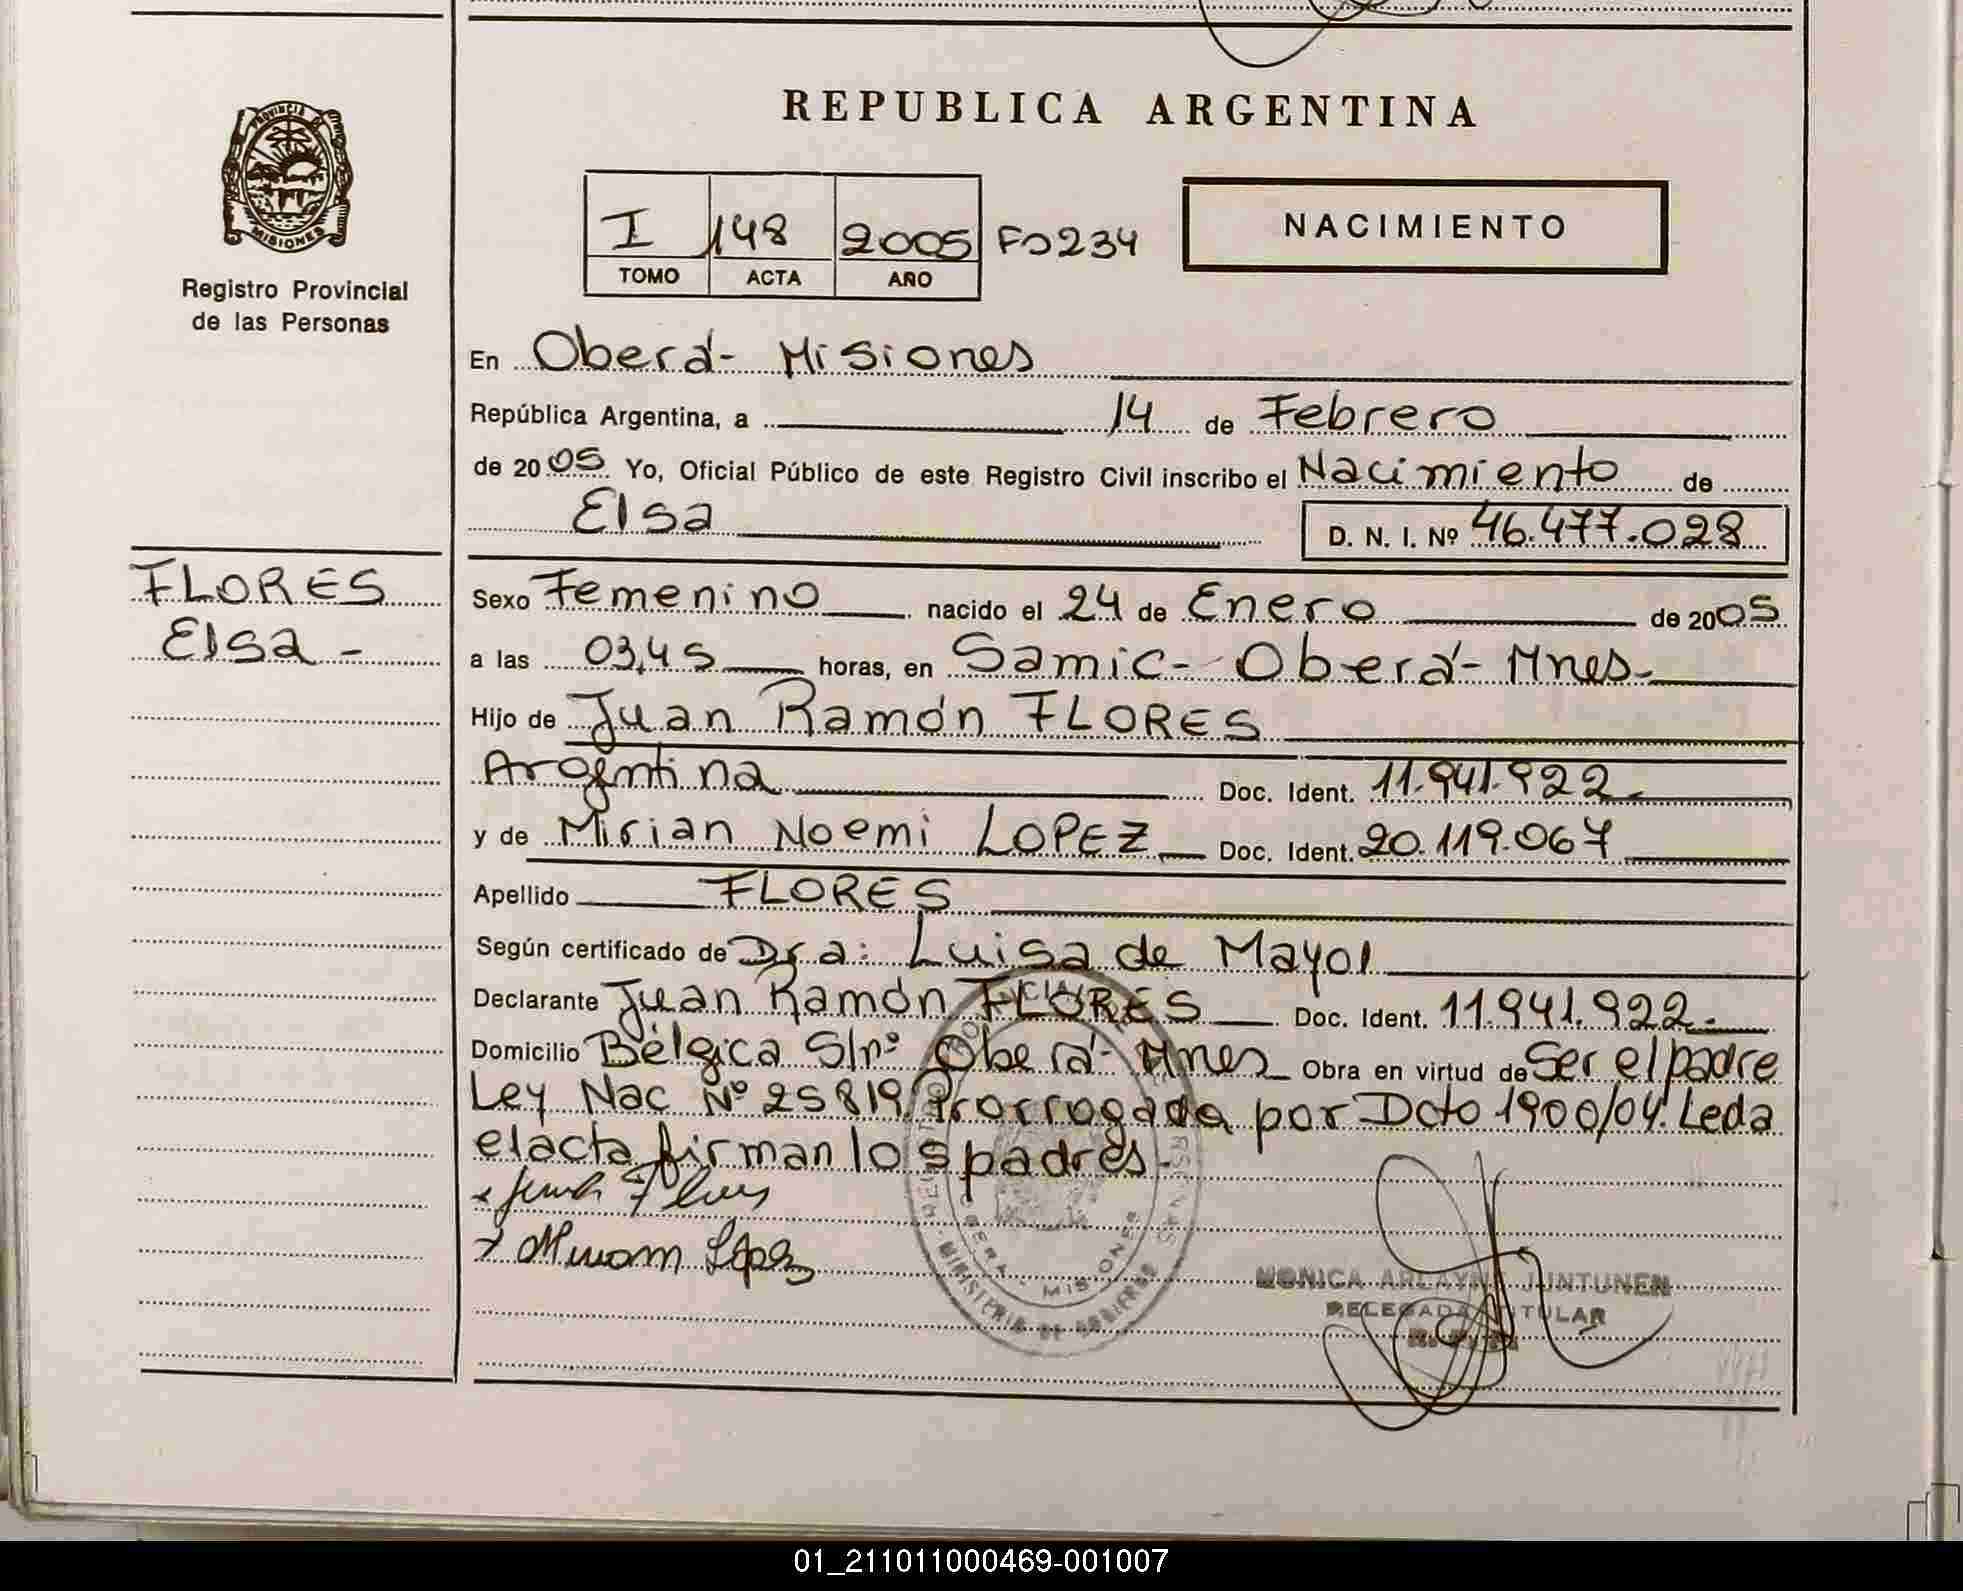 REPUBLICA ARGENTINA
PROVINCIA DE
MISIONES
Registro Provincial
de las Personas
I 148 2005 Fo 234
TOMO ACTA AÑO
NACIMIENTO
En Oberá- Misiones
República Argentina, a 14 de Febrero
de 2005 Yo, Oficial Público de este Registro Civil inscribo el Nacimiento de
Elsa D. N. I. Nº 46.477.028
FLORES
Elsa -
Sexo Femenino nacido el 24 de Enero de 2005
a las 03,45 horas, en Samic- Oberá- Mnes-
Hijo de Juan Ramón FLORES
Argentina Doc. Ident. 11.941.922.
y de Mirian Noemi LOPEZ Doc. Ident. 20.119.067
Apellido FLORES
Según certificado de Dra: Luisa de Mayol
Declarante Juan Ramón FLORES Doc. Ident. 11.941.922.-
Domicilio Bélgica S/nº Oberá- Mnes Obra en virtud de Ser el padre
Ley Nac Nº 25819 Prorrogada por Dcto 1900/04. Leda
el acta firman los padres.-
x Juan Flores
x Miriam López
OBERA - MISIONES
MINISTERIO DE GOBIERNO
MONICA JUNTUNEN
DELEGADA TITULAR
01_211011000469-001007